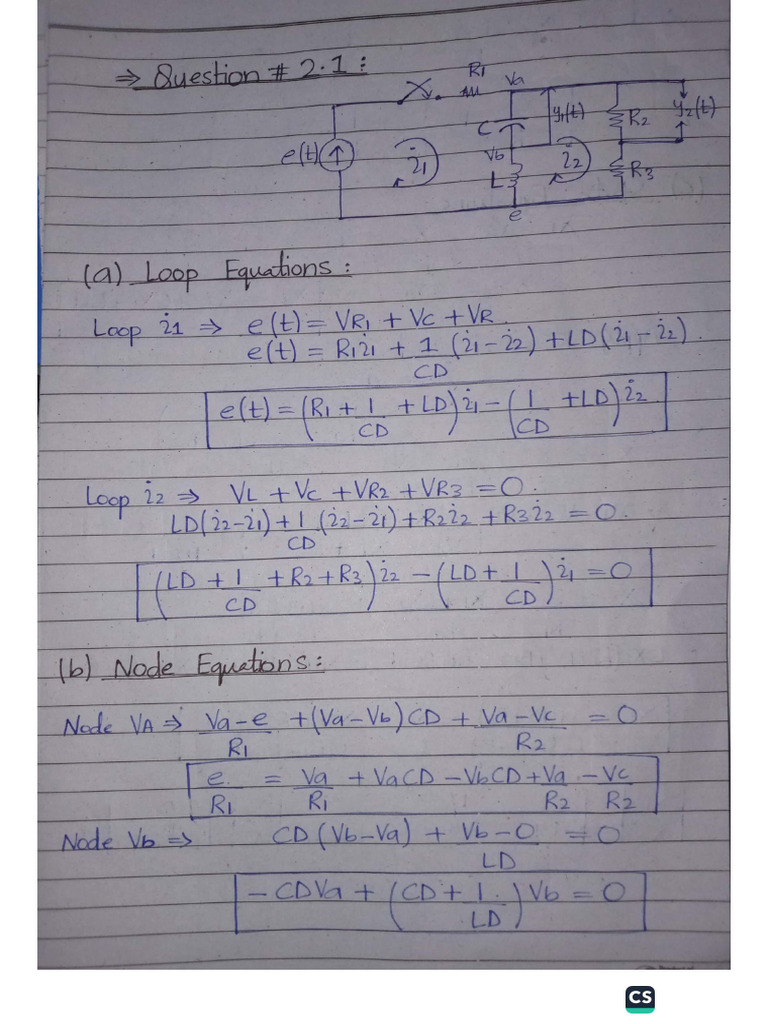 ⇒ Question # 2.1:
R1 Va
e(t) i1 C y1(t) R2 y2(t)
Vb i2
L R3
e
(a) Loop Equations:
Loop i1 ⇒ e(t) = VR1 + VC + VR
e(t) = R1i1 + 1/CD (i1 - i2) + LD(i1 - i2).
e(t) = (R1 + 1/CD + LD) i1 - (1/CD + LD) i2
Loop i2 ⇒ VL + VC + VR2 + VR3 = 0.
LD(i2 - i1) + 1/CD (i2 - i1) + R2i2 + R3i2 = 0.
(LD + 1/CD + R2 + R3) i2 - (LD + 1/CD) i1 = 0
(b) Node Equations:
Node VA ⇒ Va-e/R1 + (Va-Vb)CD + Va-Vc/R2 = 0
e/R1 = Va/R1 + VaCD - VbCD + Va/R2 - Vc/R2
Node Vb ⇒ CD(Vb-Va) + Vb-0/LD = 0
-CDVa + (CD + 1/LD) Vb = 0
CS